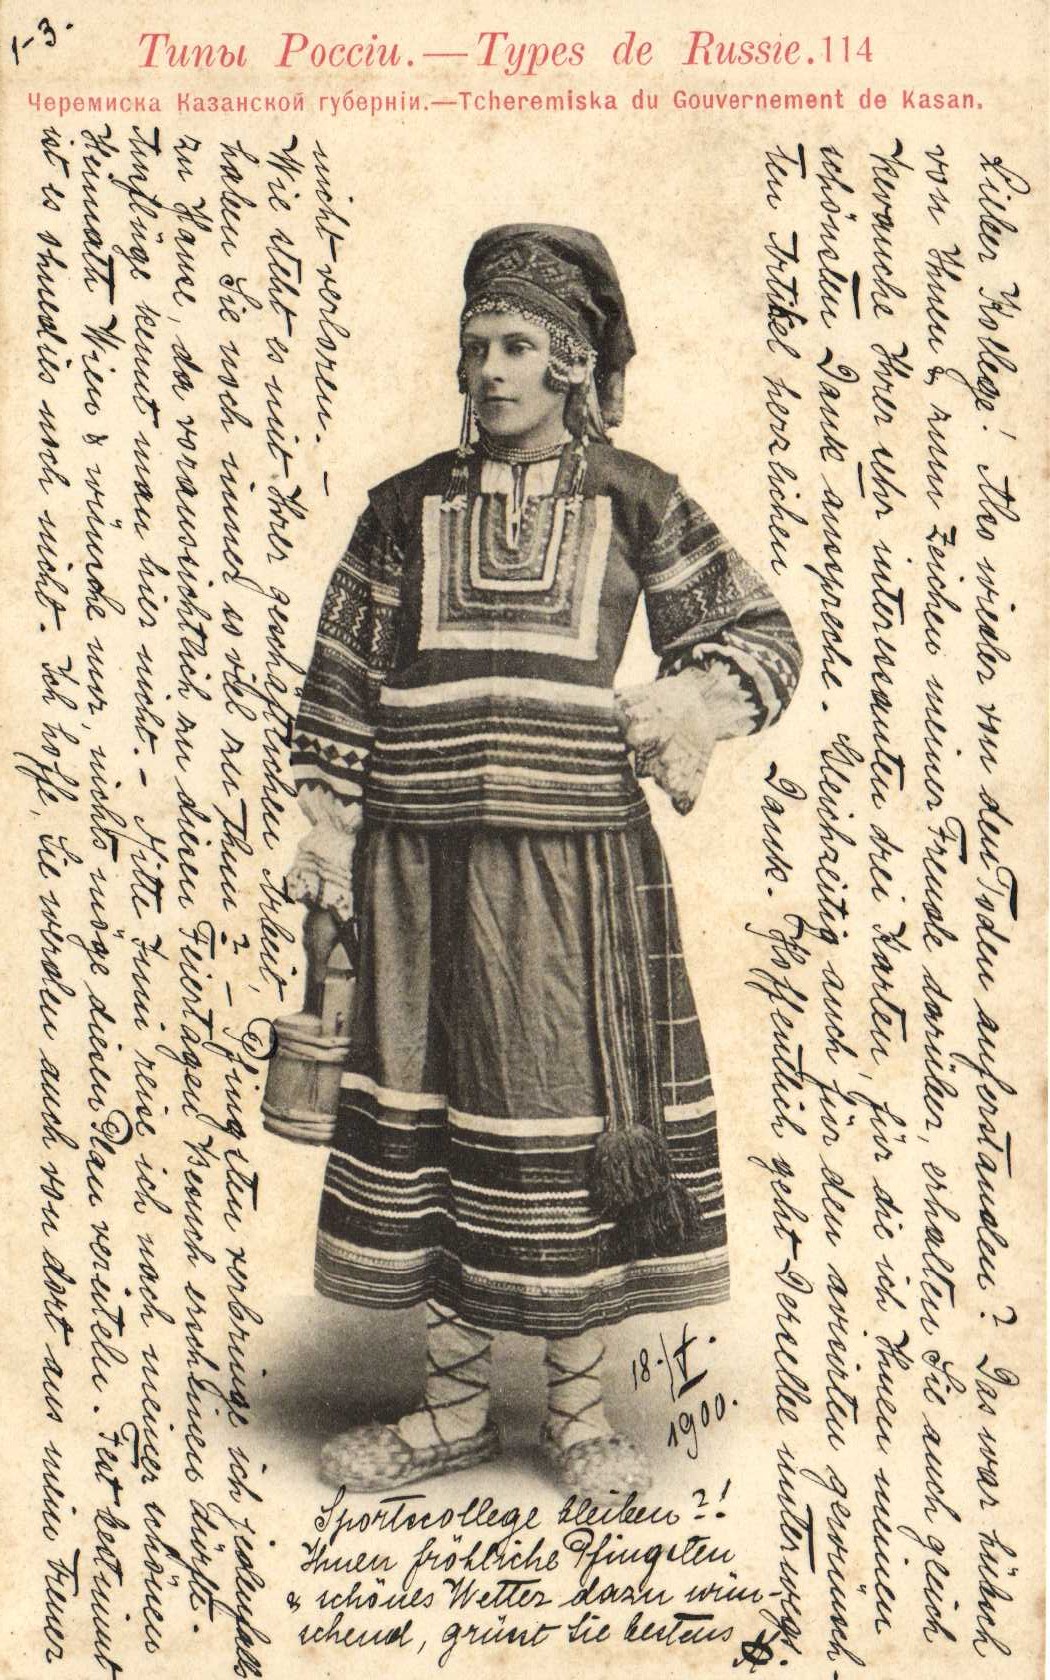 1-3.
Типы Россіи.—Types de Russie.114
Черемиска Казанской губерніи.—Tcheremiska du Gouvernement de Kasan.
Lieber Kollege! Also wieder von den Toden auferstanden? Das war hübsch
von Ihnen & zum Zeichen meiner Freude darüber, erhalten Sie auch gleich
Revanche Ihrer sehr interessanten drei Karten, für die ich Ihnen meinen
schönsten Dank ausspreche. Gleichzeitig auch für den avisirten gewünsch-
ten Artikel herzlichen Dank. Hoffentlich geht Derselbe unterwegs
nicht verloren. —
Wie steht es mit Ihrer geschäftlichen Arbeit,
haben Sie noch immer so viel zu thun? — Pfingsten verbringe ich jedenfalls
zu Hause, da voraussichtlich zu diesen Feiertagen Besuch erscheinen dürfte.
Ausflüge kennt man hier nicht. — Mitte Juni reise ich nach meiner schönen
Heimath Wien & wünsche nur, nichts möge diesen Plan vereiteln. Fest bestimmt
ist es ohnedies noch nicht. Ich hoffe, Sie werden auch von dort aus mein treuer
Sportscollege bleiben?!
Ihnen fröhliche Pfingsten
& schönes Wetter dazu wün-
schend, grüsst Sie bestens
18./V.
1900.